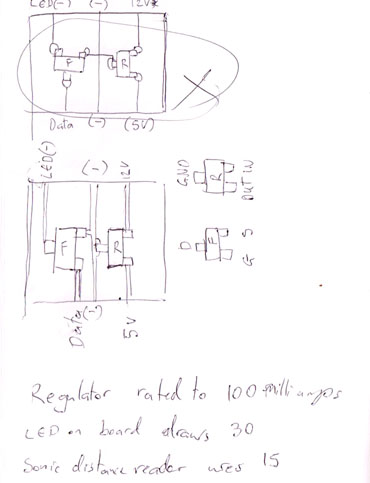 LED(-) (-) 12V
F R
Data (-) (5V)
LED(-) (-) 12V
F R
Data (-) 5V
GND R OUT IN
D F G S
Regulator rated to 100 milliamps
LED on board draws 30
Sonic distance reader uses 15